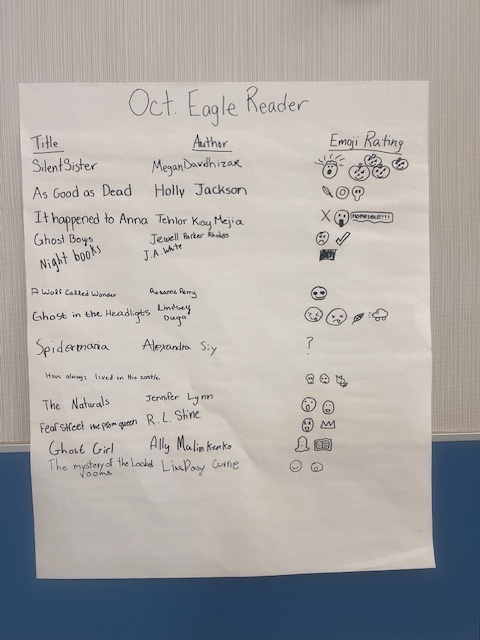 Oct. Eagle Reader
Title Author Emoji Rating
Silent Sister Megan Davidhizar
As Good as Dead Holly Jackson
It happened to Anna Tehlor Kay Mejia X HORRIBLE!!!
Ghost Boys Jewell Parker Rhodes
Night books J.A. White
A Wolf Called Wonder Rosanne Parry
Ghost in the Headligts Lindsey
Duga
Spidermania Alexandra Siy ?
Have always lived on the castle
The Naturals Jennifer Lynn
Fear Street the prom queen R.L. Stine
Ghost Girl Ally Malinkenko
The mystery of the Locked Lisa Day Currie
rooms